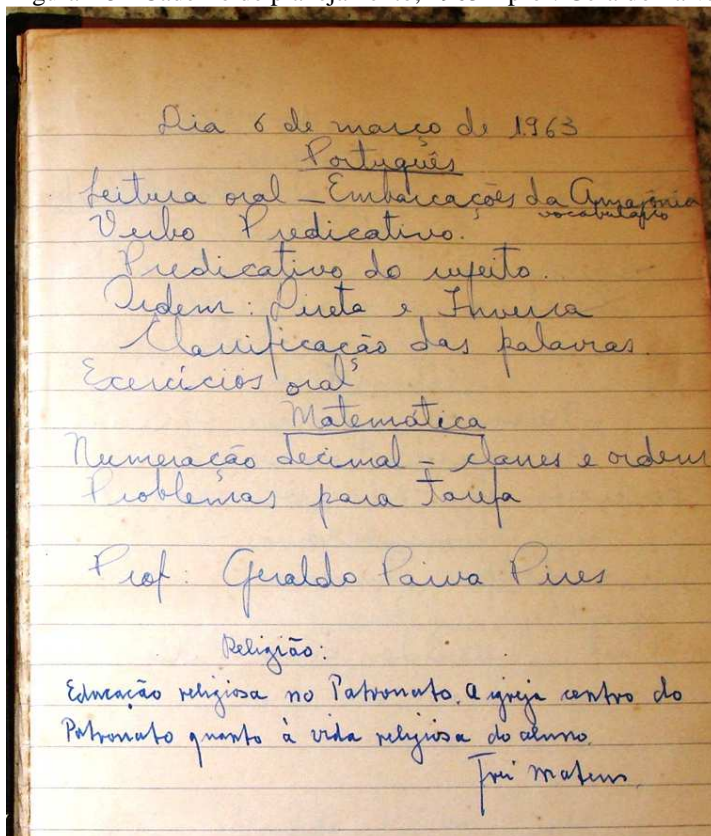 Dia 6 de março de 1963
Português
Leitura oral – Embarcações da Amazônia
vocabulário
Verbo Predicativo.
Predicativo do sujeito.
Ordem: Direta e Inversa
Classificação das palavras.
Exercícios oral s
Matemática
Numeração decimal – classes e ordem
Problemas para Tarefa
Prof: Geraldo Paiva Pires
Religião:
Educação religiosa no Patronato. A igreja centro do
Patronato quanto à vida religiosa do aluno.
Frei Mateus